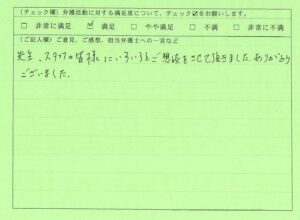 (チェック欄)弁護活動に対する満足度について、チェック☑をお願いします。
□ 非常に満足 ☑ 満足 □ やや満足 □ 不満 □ 非常に不満
(ご記入欄)ご意見、ご感想、担当弁護士への一言など
先生、スタッフの皆様にいろいろとご相談をさせて頂きました。ありがとう
ございました。